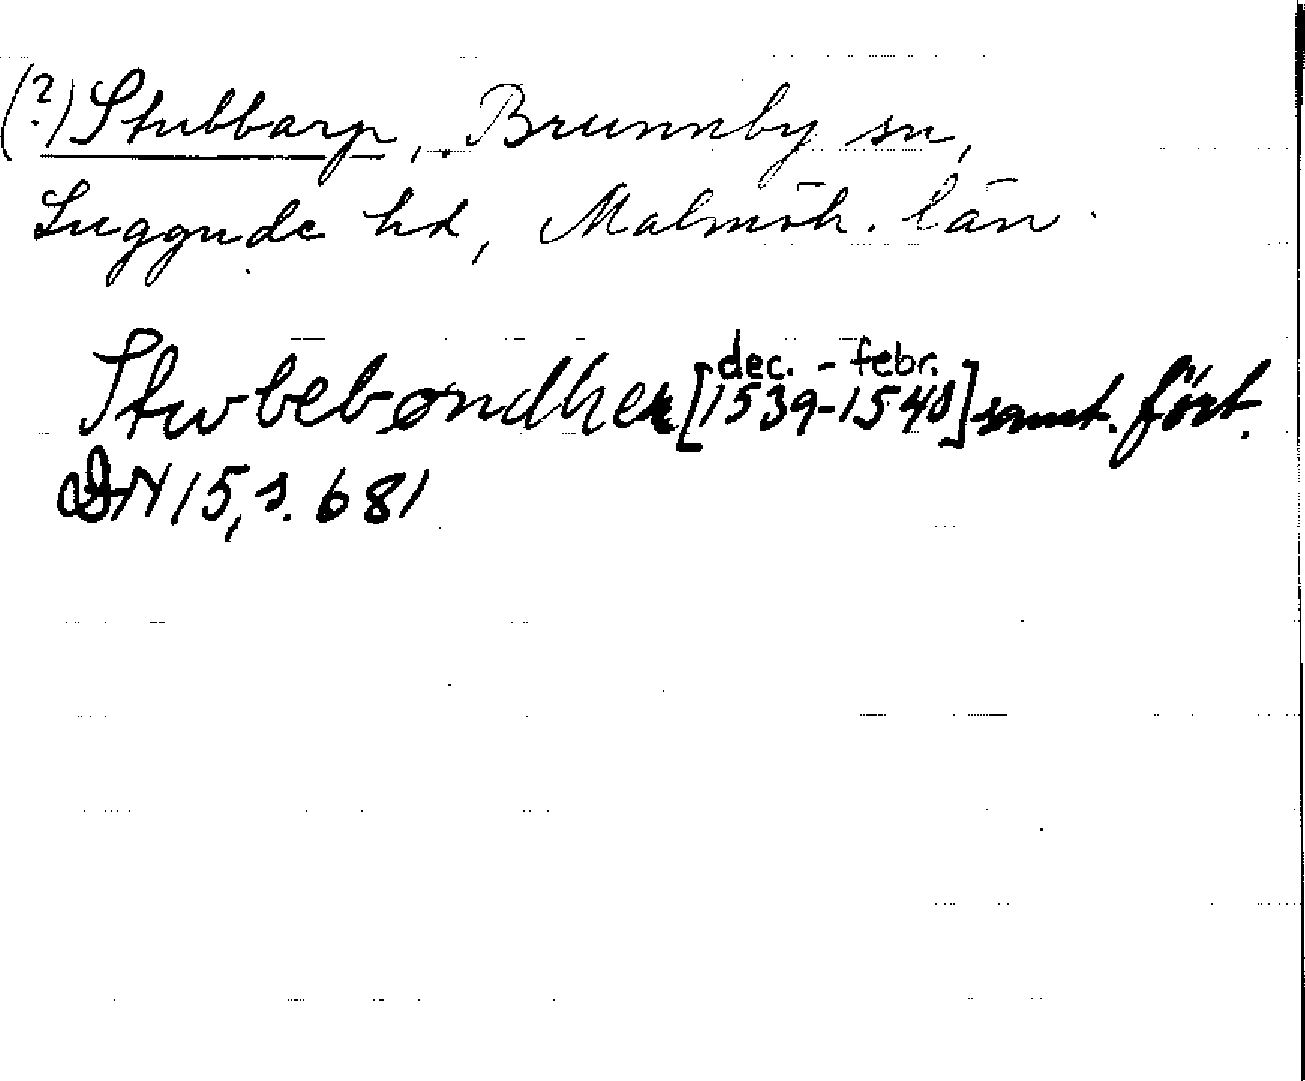 (?) Stubbarp, Brunnby sn,
Luggude hd, Malmöh. län.
Stwbebøndher [dec. - febr. 1539-1540] samt. fört.
DN 15, s. 681